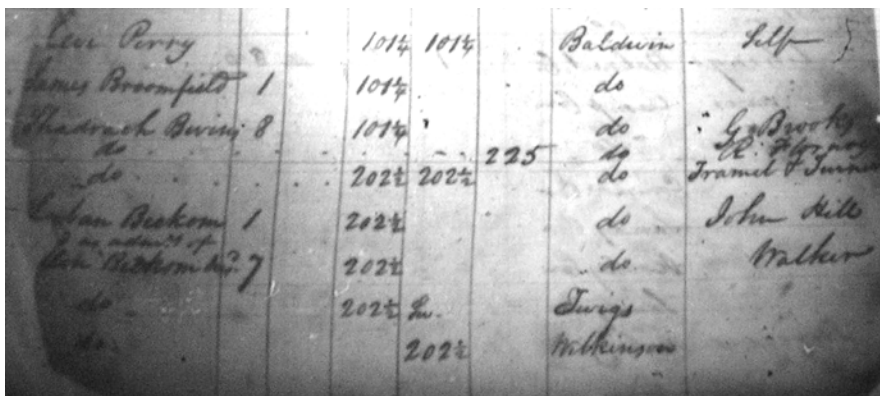 Levi Perry 101¼ 101¼ Baldwin Self
James Broomfield 1 101¼ do
Shadrach Bivins 8 101¼ do G Brooks
do 225 do
do 202½ 202½ do Tramel & Turner
Beckom 1 202½ do John Hill
as adm's of
Beckom 7 202½ do Walker
do 202½ Twigs
do 202½ Wilkinson